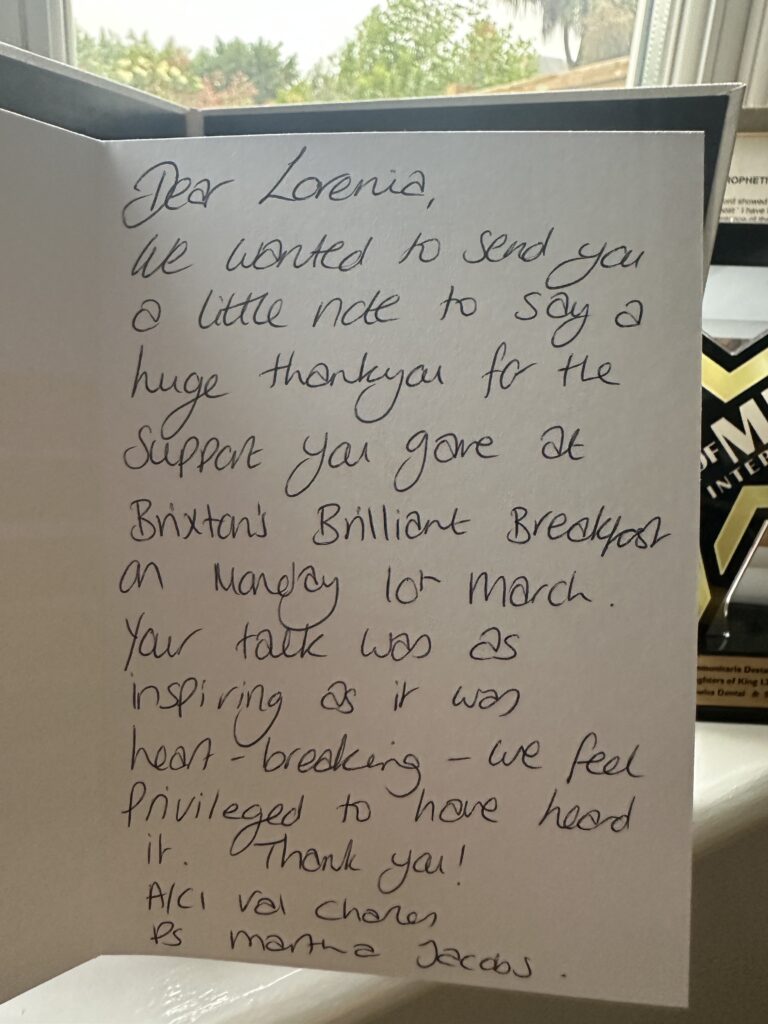 Dear Lorenia,
We wanted to send you
a little note to say a
huge thankyou for the
support you gave at
Brixton's Brilliant Breakfast
on Monday 1st March.
Your talk was as
inspiring as it was
heart-breaking - we feel
privileged to have heard
it. Thank you!
A/CI Val
PS Martha Jacobs.
OF M
INTER